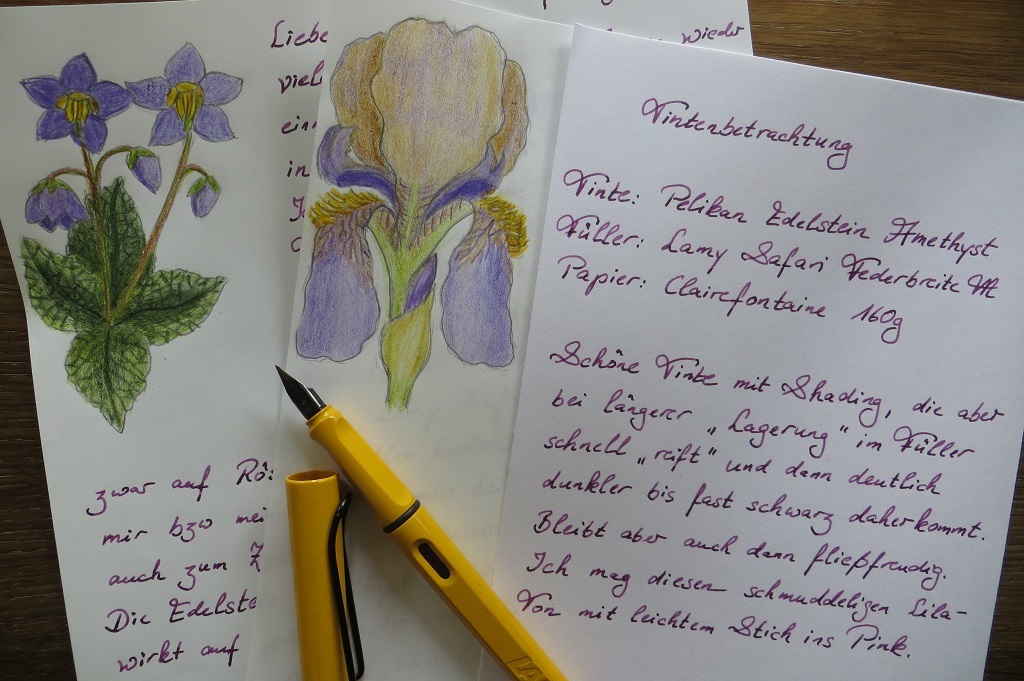 Liebe
wieder
viel
ein
in
zwar auf Rö
mir bzw mei
auch zum Z
Die Edelste
wirkt auf
Tintenbetrachtung
Tinte: Pelikan Edelstein Amethyst
Füller: Lamy Safari Federbreite M
Papier: Clairefontaine 160g
Schöne Tinte mit Shading, die aber
bei längerer „Lagerung“ im Füller
schnell „reift“ und dann deutlich
dunkler bis fast schwarz daherkommt.
Bleibt aber auch dann fließfreudig.
Ich mag diesen schmuddeligen Lila-
Ton mit leichtem Stich ins Pink.